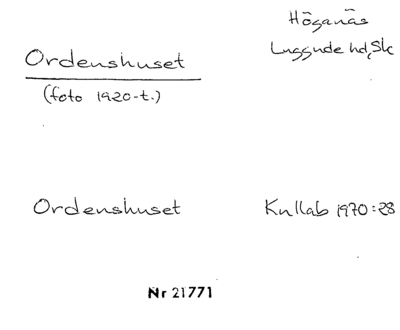 Höganäs
Luggude hd, Sk
Ordenshuset
(foto 1920-t.)
Ordenshuset
Kullab 1970:28
Nr 21771